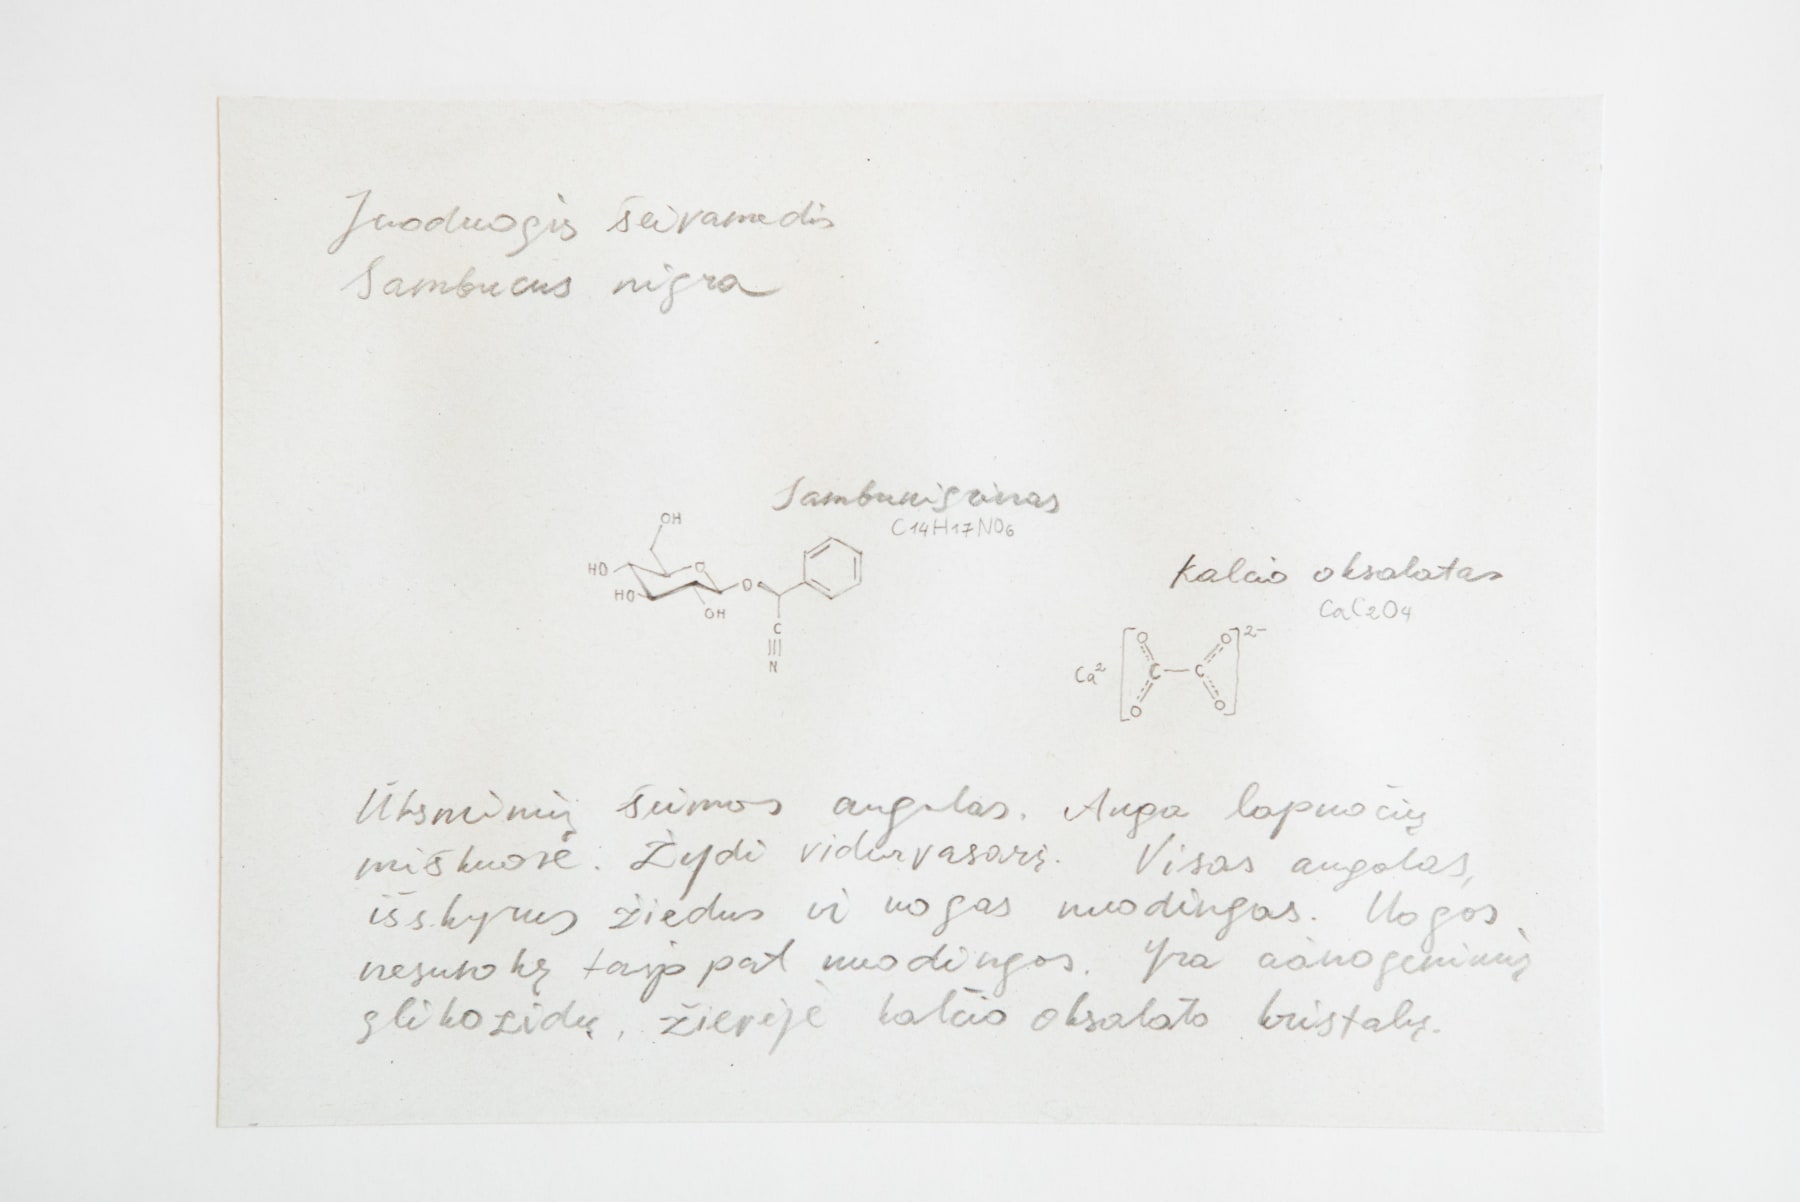 Juoduogis šeivamedis
Sambucus nigra
Sambunigrinas
C14H17NO6
OH
HO
O
HO
OH
O
C
N
Kalcio oksalatas
CaC2O4
Ca2 [O O]2-
C C
O O
Ūksminių šeimos augalas. Auga lapuočių
miškuose. Žydi vidurvasarį. Visas augalas,
išskyrus žiedus ir uogas nuodingas. Uogos
nesunokę taip pat nuodingos. Yra cianogeninių
glikozidų, žievėje kalcio oksalato kristalų.